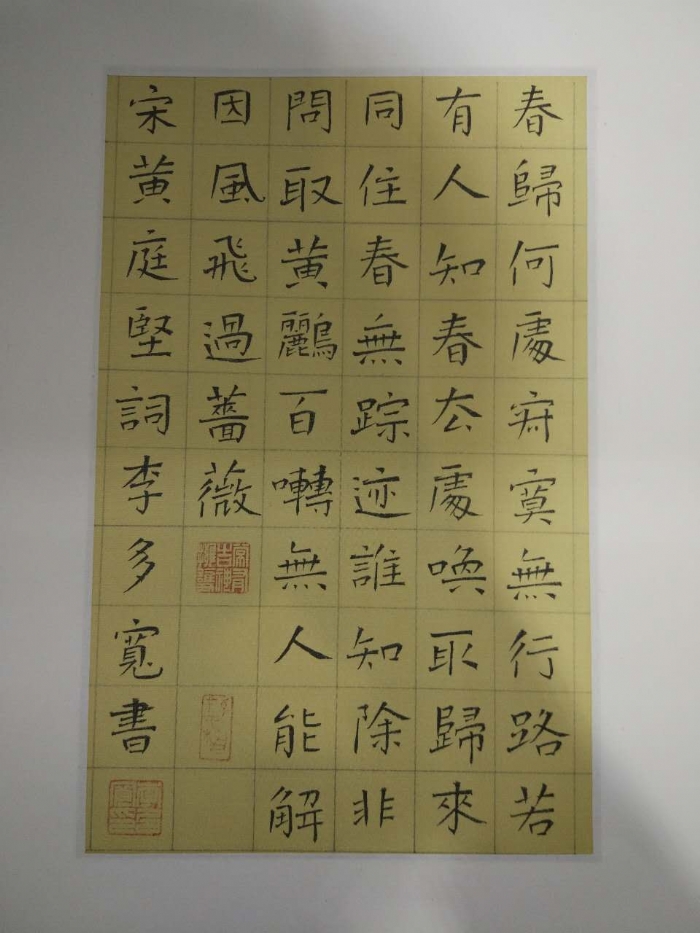 春歸何處寂寞無行路若
有人知春去處喚取歸來
同住春無踪迹誰知除非
問取黃鸝百囀無人能解
因風飛過薔薇
宋黃庭堅詞李多寬書